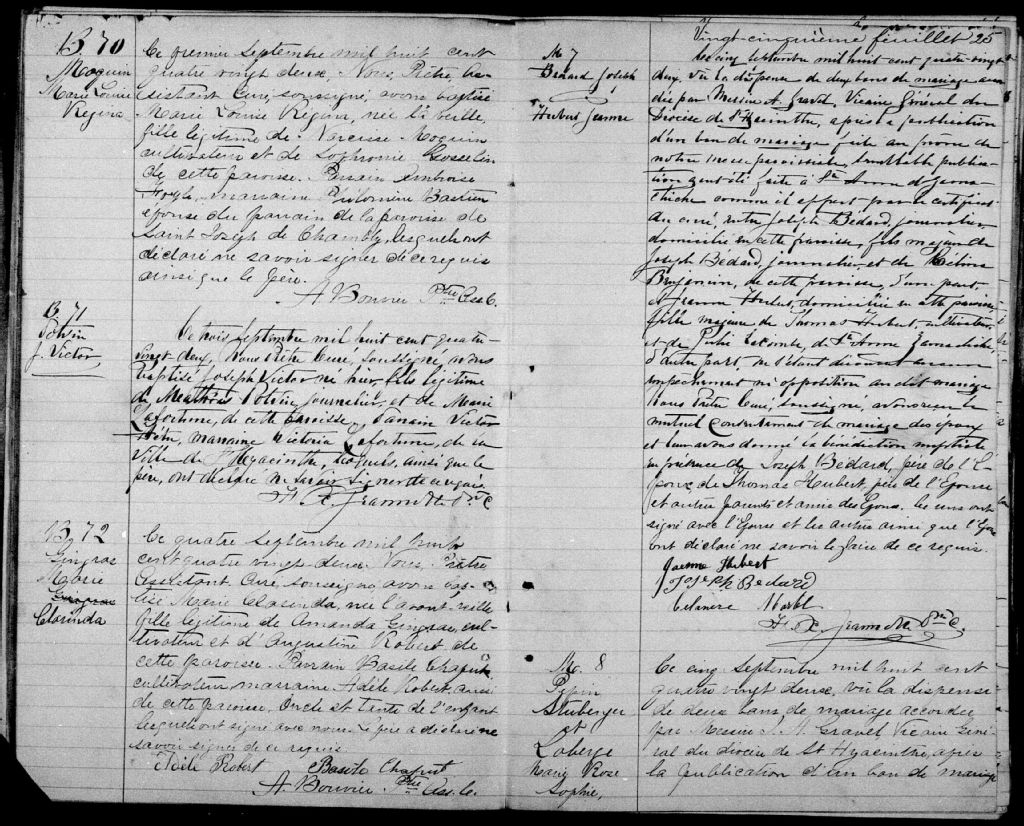 B. 70
Moquin
Marie Louise
Regina
Ce premier Septembre mil huit cent
quatre vingt deux, Nous, Prêtre, As-
sistant Curé, soussigné, avons baptisé
Marie Louise Régina, née la veille,
fille légitime de Narcisse Moquin
cultivateur et de Sophronie Gosselin
de cette paroisse. Parrain Ambroise
marraine Philomène Bastien
épouse du parrain de la paroisse de
Saint Joseph de Chambly, lesquels ont
déclaré ne savoir signer de ce requis
ainsi que le père.
A Bouvier Ptre Ass. C.
B 71
Potvin
J. Victor
Ce trois septembre mil huit cent quatre
vingt-deux, Nous Prêtre Curé, soussigné, avons
baptisé Joseph Victor né hier, fils légitime
de Mathias Potvin journalier, et de Marie
Lafortune, de cette paroisse. Parrain Victor
Hétu, marraine Victoria Lafortune, de la
Ville de St Hyacinthe, lesquels, ainsi que le
père, ont déclaré ne savoir signer de ce requis.
Jeannotte Ptre C
B. 72
Gingras
Marie
Clarinda
Ce quatre Septembre mil huit
cent quatre vingt deux. Nous, Prêtre
Assistant Curé, soussigné avons bap-
tisé Marie Clarinda, née l'avant-veille
fille légitime de Amanda Gingras, cul-
tivateur et d'Augustine Robert de
cette paroisse. Parrain Basile Chaput
cultivateur, marraine Adèle Robert, aussi
de cette paroisse, Oncle et tante de l'enfant
lesquels ont signé avec nous. Le père a déclaré ne
savoir signer de ce requis.
Adèle Robert Basile Chaput
A Bouvier Ptre Ass. C.
Vingt-cinquième feuillet 25
M. 7
Bédard Joseph
&
Hubert Jeanne
Le cinq septembre mil huit cent quatre-vingt
deux. Vu la dispense de deux bans de mariage accor-
dée par Messire A. Gravel, Vicaire Général du
Diocèse de St Hyacinthe, après la publication
d'un ban de mariage faite au prône de
notre messe paroissiale, semblable publica-
tion ayant été faite à Ste Anne d'Yama-
chiche comme il appert par le certificat
du curé, entre Joseph Bédard, journalier,
domicilié en cette paroisse, fils majeur de
Joseph Bédard, journalier, et de
Benjamin, de cette paroisse, d'une part,
et Jeanne Hubert, domiciliée en cette paroisse,
fille majeure de Thomas Hubert, cultivateur,
et de Lacombe, de Ste Anne Yamachiche,
d'autre part, ne s'étant découvert aucun
empêchement ni opposition au dit mariage
Nous Prêtre Curé, soussigné, avons reçu le
mutuel consentement de mariage des époux
et leur avons donné la bénédiction nuptiale
en présence de Joseph Bédard, père de l'É-
poux, de Thomas Hubert, père de l'Épouse
et autres parents et amis des Époux. les uns ont
signé avec l'Épouse et les autres ainsi que l'Époux
ont déclaré ne savoir le faire de ce requis.
Jeanne Hubert
Joseph Bedard
Jeannotte Ptre C.
M. 8
Pepin
et
Laberge
Marie Rose
Sophie,
Ce cinq Septembre mil huit cent
quatre vingt deux, vu la dispense
de deux bans de mariage accordée
par Messire A. Gravel Vicaire Géné-
ral du diocèse de St Hyacinthe, après
la publication d'un ban de mariage